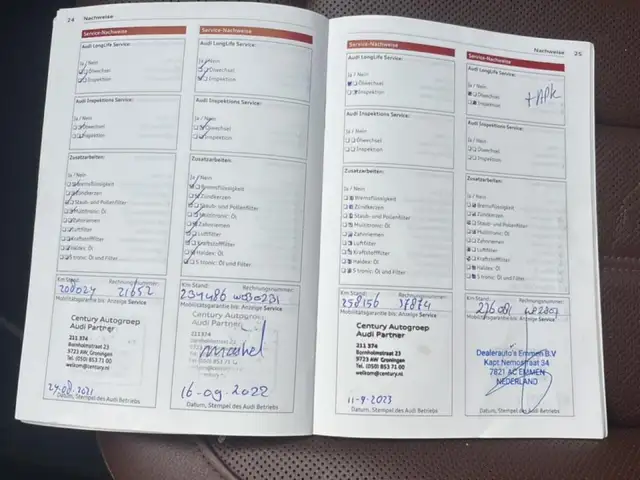 24 Nachweise
Service-Nachweise
Audi LongLife Service:
Ja / Nein
Ölwechsel
Inspektion
Audi Inspektions Service:
Ja / Nein
Ölwechsel
Inspektion
Zusatzarbeiten:
Ja / Nein
Bremsflüssigkeit
Zündkerzen
Staub- und Pollenfilter
Multitronic: Öl
Zahnriemen
Luftfilter
Kraftstofffilter
Haldex: Öl
S tronic: Öl und Filter
Km Stand: Rechnungsnummer:
208024 21652
Mobilitätsgarantie bis: Anzeige Service
Century Autogroep
Audi Partner
211 374
Bornholmstraat 23
9723 AW Groningen
Tel. (050) 853 71 00
welkom@century.nl
24-08-2021
Datum, Stempel des Audi Betriebs
Service-Nachweise
Audi LongLife Service:
Ja / Nein
Ölwechsel
Inspektion
Audi Inspektions Service:
Ja / Nein
Ölwechsel
Inspektion
Zusatzarbeiten:
Ja / Nein
Bremsflüssigkeit
Zündkerzen
Staub- und Pollenfilter
Multitronic: Öl
Zahnriemen
Luftfilter
Kraftstofffilter
Haldex: Öl
S tronic: Öl und Filter
Km Stand: Rechnungsnummer:
234486 W030231
Mobilitätsgarantie bis: Anzeige Service
Century Autogroep
Audi Partner
211 374
16-09-2022
Datum, Stempel des Audi Betriebs
Service-Nachweise
Audi LongLife Service:
Ja / Nein
Ölwechsel
Inspektion
Audi Inspektions Service:
Ja / Nein
Ölwechsel
Inspektion
Zusatzarbeiten:
Ja / Nein
Bremsflüssigkeit
Zündkerzen
Staub- und Pollenfilter
Multitronic: Öl
Zahnriemen
Luftfilter
Kraftstofffilter
Haldex: Öl
S tronic: Öl und Filter
Km Stand: Rechnungsnummer:
258156 37874
Mobilitätsgarantie bis: Anzeige Service
Century Autogroep
Audi Partner
211 374
Bornholmstraat 23
9723 AW Groningen
Tel. (050) 853 71 00
welkom@century.nl
11-9-2023
Datum, Stempel des Audi Betriebs
Nachweise 25
Service-Nachweise
Audi LongLife Service:
Ja / Nein
Ölwechsel
Inspektion
+ APK
Audi Inspektions Service:
Ja / Nein
Ölwechsel
Inspektion
Zusatzarbeiten:
Ja / Nein
Bremsflüssigkeit
Zündkerzen
Staub- und Pollenfilter
Multitronic: Öl
Zahnriemen
Luftfilter
Kraftstofffilter
Haldex: Öl
S tronic: Öl und Filter
Km Stand: Rechnungsnummer:
276081
Mobilitätsgarantie bis: Anzeige Service
Dealerauto's Emmen B.V
Kapt Nemostraat 34
7821 AC EMMEN
NEDERLAND
Datum, Stempel des Audi Betriebs